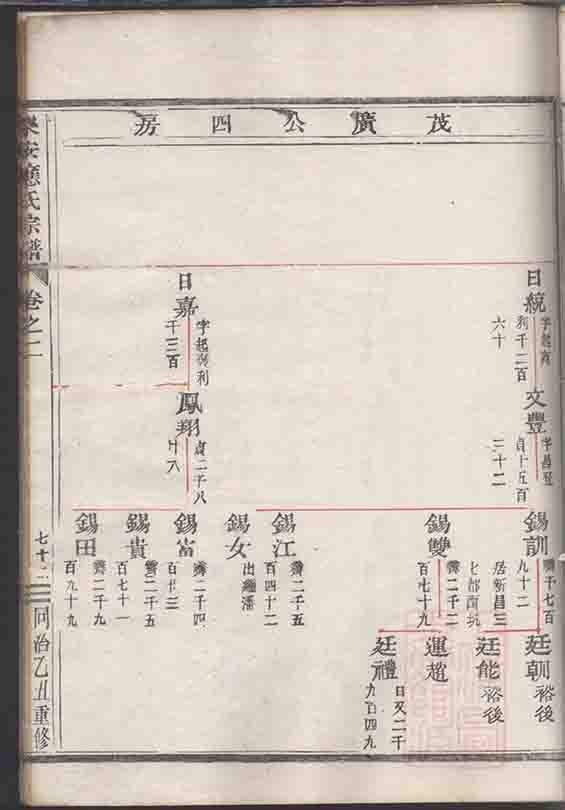 茂廣公四房
日統
字起商
利千二百
六十
文豐
字昌登
貞十五百
三十二
錫訓
濟千七百
九十二
居新昌三
七都南坑
廷朝
裕後
廷能
裕後
錫雙
濟二千二
百七十九
運趙
廷禮
日又二千
九百四九
錫江
濟二千五
百四十二
錫女
出繼潘
日嘉
字起
利
千三百
鳳翔
貞二千八
十八
錫富
濟二千四
百廿三
錫貴
濟二千五
百七十一
錫田
濟二千九
百九十九
樂安應氏宗譜
卷之二
七十二
同治乙丑重修